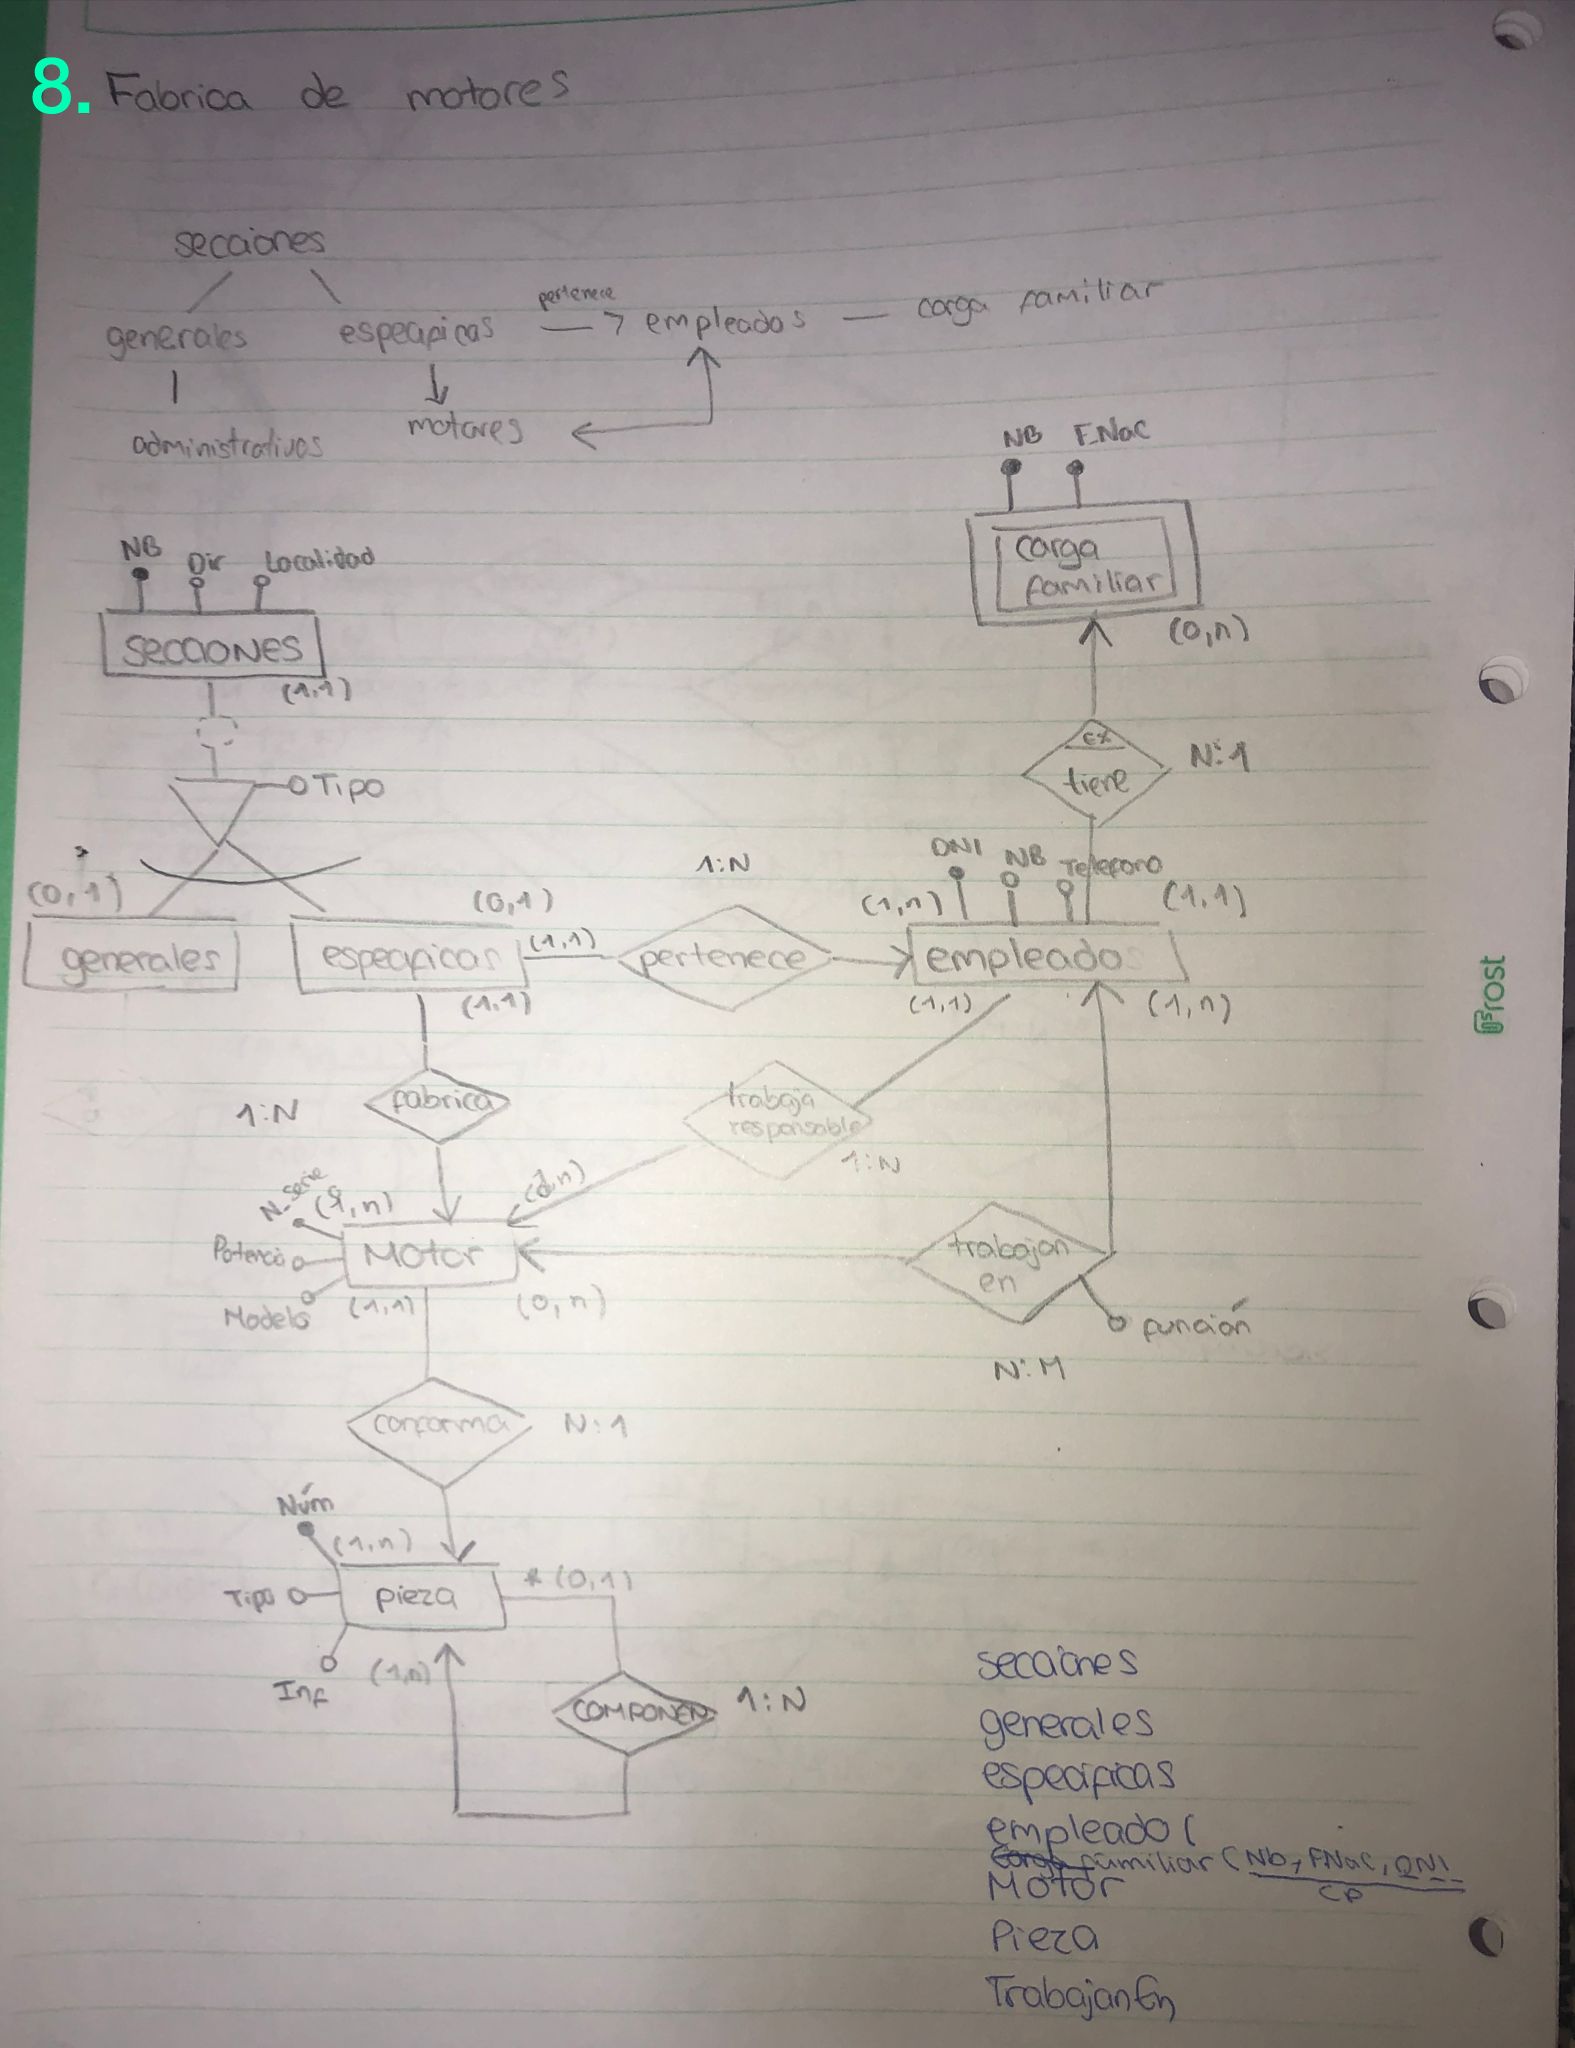 8. Fabrica de motores
secciones
generales
especificas
pertenece
empleados
carga familiar
administrativos
motores
NB
F_Nac
carga
familiar
(0,n)
EX
tiene
N:1
NB
Dir
Localidad
SECCIONES
(1,1)
Tipo
(0,1)
generales
(0,1)
especificas
(1,1)
(1,1)
1:N
pertenece
DNI
NB
Telefono
(1,n)
(1,1)
empleados
(1,1)
(1,n)
fabrica
1:N
trabaja
responsable
1:N
N_Serie
Potencia
Modelo
Motor
(1,1)
(0,n)
trabajan
en
función
N:M
conforma
N:1
Núm
(1,n)
Tipo
pieza
* (0,1)
Inf
(1,n)
COMPONEN
1:N
Frost
secciones
generales
especificas
empleado (
familiar (Nb, FNac, DNI
CP
Motor
Pieza
TrabajanEn